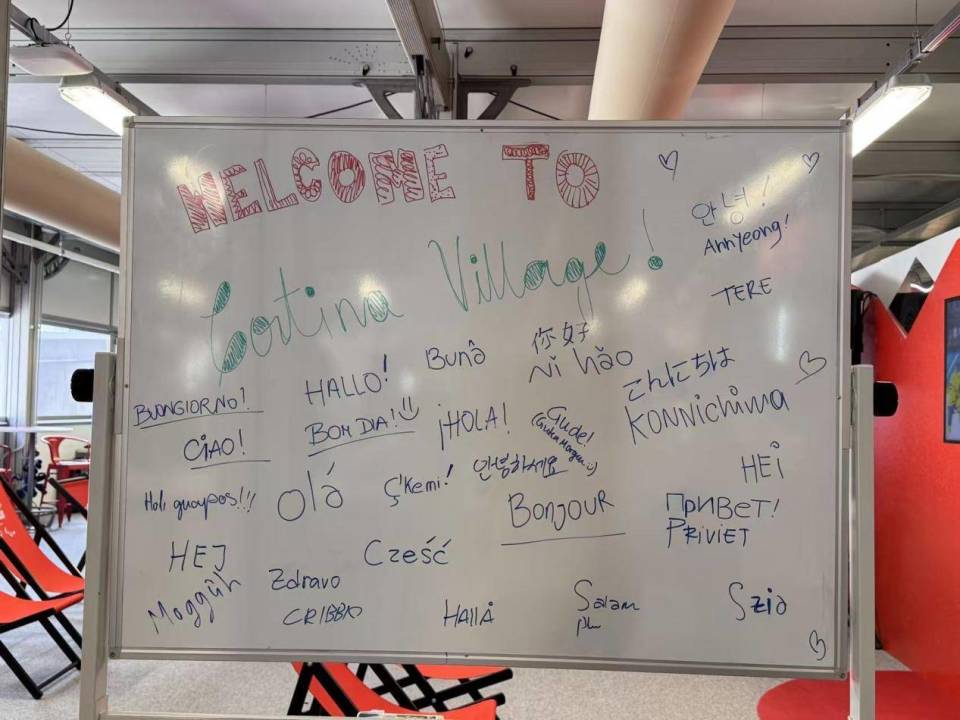 WELCOME TO
Cortina Village!
안녕!
Annyeong!
TERE
Bună
你好
Nǐ hǎo
HALLO!
こんにちは
KONNICHIWA
BUONGIORNO!
CIAO!
BOM DIA!
¡HOLA!
Gude!
(Guten Morgen :)
안녕하세요
HEi
Holi guapos!!!
Olá
Ç'Kemi!
BonJOUR
ПРИВЕТ!
PRIVIET
HEJ
Cześć
Moggÿh
Zdravo
CRIBBIO
HALLÅ
Salam
Szia